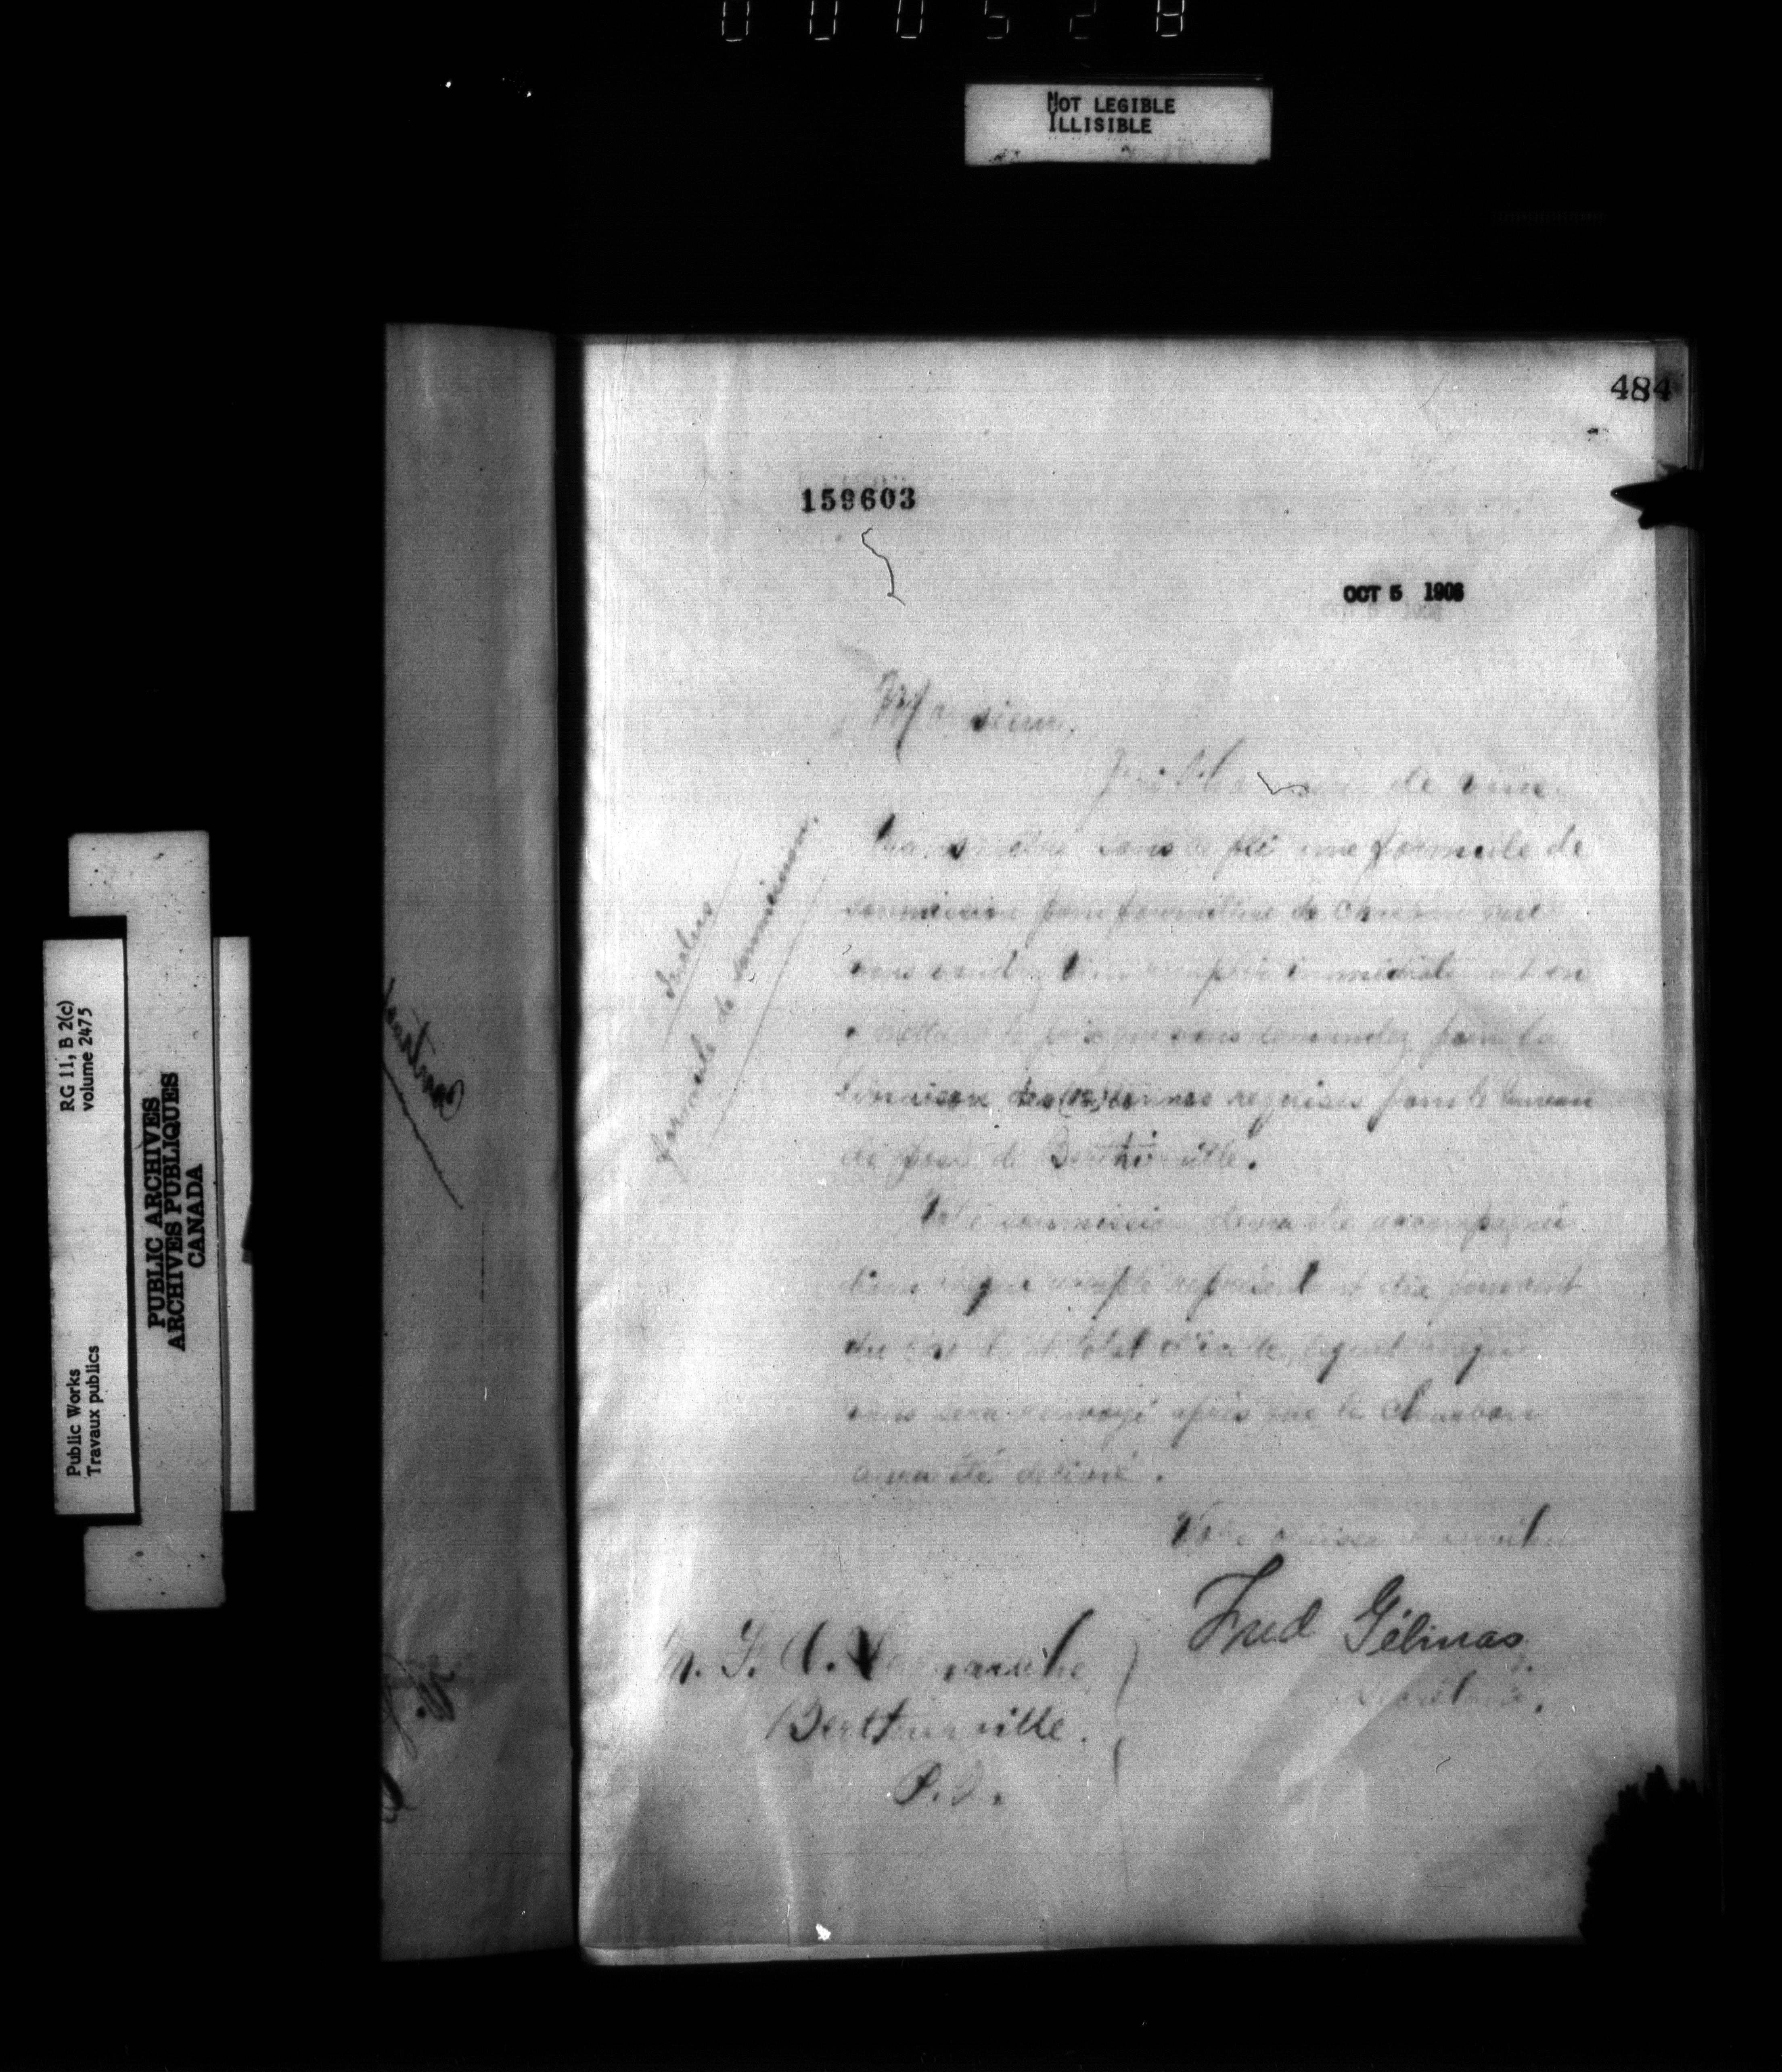 000528
NOT LEGIBLE
ILLISIBLE
484
159603
OCT 5 1906
Monsieur,
J'ai l'honneur de vous
transmettre sous ce pli une formule de
soumission pour fourniture de charbon que
vous voudrez bien remplir immédiatement en
mettant le prix que vous demandez pour la
livraison des tonnes requises pour le bureau
de poste de Berthierville.
Votre soumission devra être accompagnée
d'un chèque accepté représentant dix pour cent
du montant total lequel chèque
vous sera renvoyé après que le charbon
aura été délivré.
Votre obéissant serviteur
Fred Gélinas,
Secrétaire.
Berthierville.
P.Q.
Inclus
formule de soumission.
RG 11, B 2(c)
volume 2475
PUBLIC ARCHIVES
ARCHIVES PUBLIQUES
CANADA
Public Works
Travaux publics